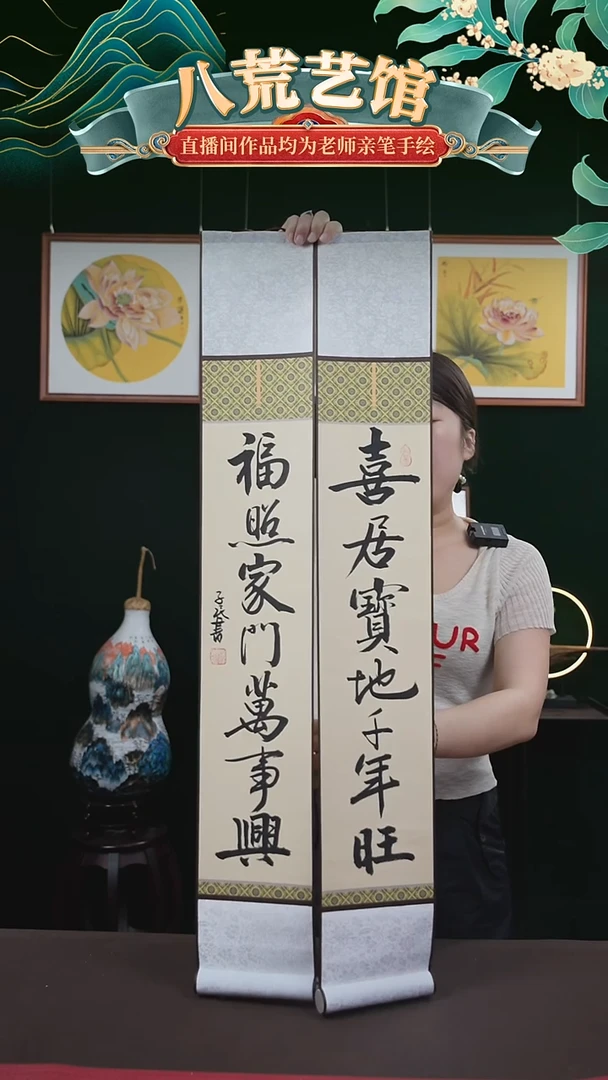 八荒艺馆
直播间作品均为老师亲笔手绘
喜居寶地千年旺
福照家門萬事興
UR